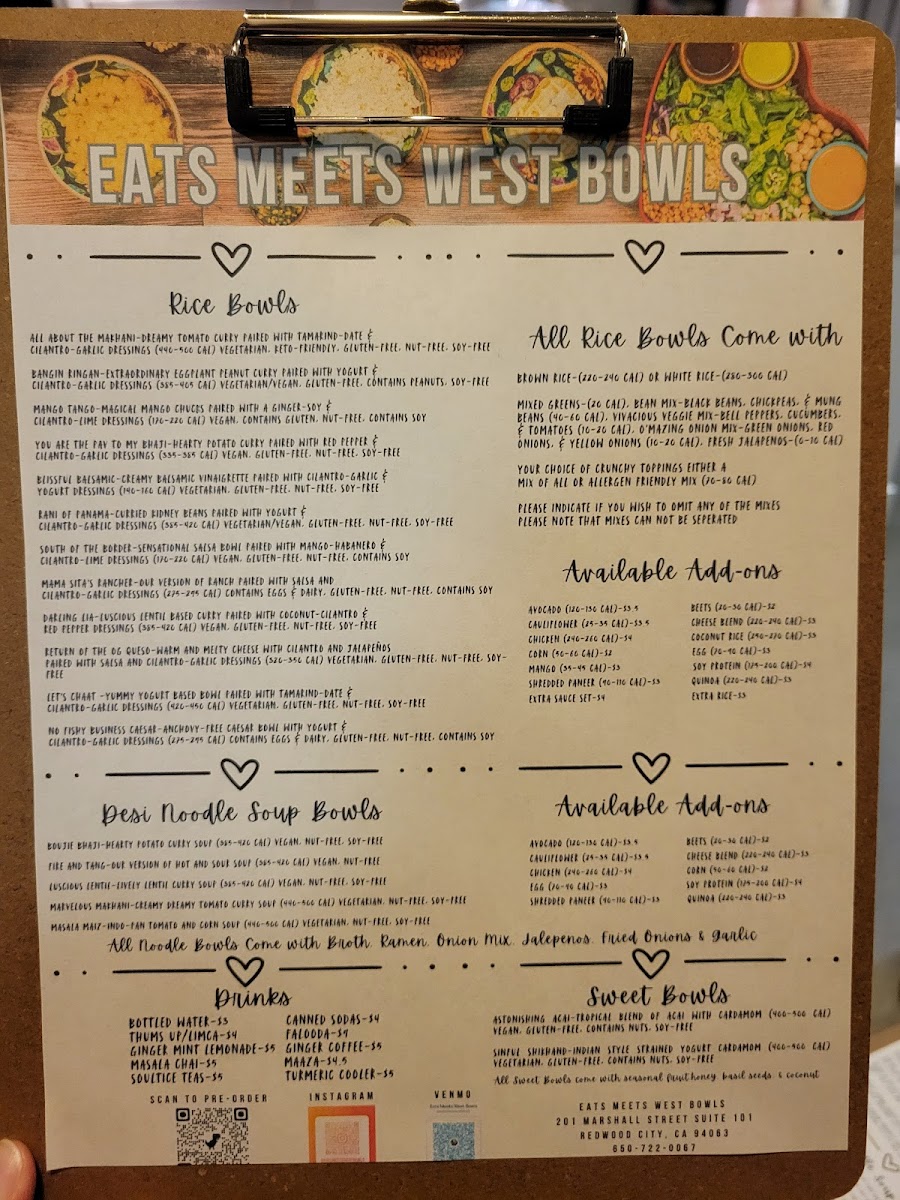 EATS MEETS WEST BOWLS
Rice Bowls
ALL ABOUT THE MAKHANI-DREAMY TOMATO CURRY PAIRED WITH TAMARIND-DATE &
CILANTRO-GARLIC DRESSINGS (440-500 CAL) VEGETARIAN, KETO-FRIENDLY, GLUTEN-FREE, NUT-FREE, SOY-FREE
BANGIN RINGAN-EXTRAORDINARY EGGPLANT PEANUT CURRY PAIRED WITH YOGURT &
CILANTRO-GARLIC DRESSINGS (385-405 CAL) VEGETARIAN/VEGAN, GLUTEN-FREE, CONTAINS PEANUTS, SOY-FREE
MANGO TANGO-MAGICAL MANGO CHUCKS PAIRED WITH A GINGER-SOY &
CILANTRO-LIME DRESSINGS (170-220 CAL) VEGAN, CONTAINS GLUTEN, NUT-FREE, CONTAINS SOY
YOU ARE THE PAV TO MY BHAJI-HEARTY POTATO CURRY PAIRED WITH RED PEPPER &
CILANTRO-GARLIC DRESSINGS (335-385 CAL) VEGAN, GLUTEN-FREE, NUT-FREE, SOY-FREE
BLISSFUL BALSAMIC-CREAMY BALSAMIC VINAIGRETTE PAIRED WITH CILANTRO-GARLIC &
YOGURT DRESSINGS (140-160 CAL) VEGETARIAN, GLUTEN-FREE, NUT-FREE, SOY-FREE
RANI OF PANAMA-CURRIED KIDNEY BEANS PAIRED WITH YOGURT &
CILANTRO-GARLIC DRESSINGS (385-420 CAL) VEGETARIAN/VEGAN, GLUTEN-FREE, NUT-FREE, SOY-FREE
SOUTH OF THE BORDER-SENSATIONAL SALSA BOWL PAIRED WITH MANGO-HABANERO &
CILANTRO-LIME DRESSINGS (170-220 CAL) VEGAN, GLUTEN-FREE, NUT-FREE, CONTAINS SOY
MAMA SITA'S RANCHER-OUR VERSION OF RANCH PAIRED WITH SALSA AND
CILANTRO-GARLIC DRESSINGS (275-295 CAL) CONTAINS EGGS & DAIRY, GLUTEN-FREE, NUT-FREE, CONTAINS SOY
DARLING LIA-LUSCIOUS LENTIL BASED CURRY PAIRED WITH COCONUT-CILANTRO &
RED PEPPER DRESSINGS (385-420 CAL) VEGAN, GLUTEN-FREE, NUT-FREE, SOY-FREE
RETURN OF THE OG QUESO-WARM AND MELTY CHEESE WITH CILANTRO AND JALAPEÑOS
PAIRED WITH SALSA AND CILANTRO-GARLIC DRESSINGS (320-350 CAL) VEGETARIAN, GLUTEN-FREE, NUT-FREE, SOY-
FREE
LET'S CHAAT -YUMMY YOGURT BASED BOWL PAIRED WITH TAMARIND-DATE &
CILANTRO-GARLIC DRESSINGS (420-450 CAL) VEGETARIAN, GLUTEN-FREE, NUT-FREE, SOY-FREE
NO FISHY BUSINESS CAESAR-ANCHOVY-FREE CAESAR BOWL WITH YOGURT &
CILANTRO-GARLIC DRESSINGS (275-295 CAL) CONTAINS EGGS & DAIRY, GLUTEN-FREE, NUT-FREE, CONTAINS SOY
All Rice Bowls Come with
BROWN RICE-(220-240 CAL) OR WHITE RICE-(280-300 CAL)
MIXED GREENS-(20 CAL), BEAN MIX-BLACK BEANS, CHICKPEAS, & MUNG
BEANS (40-60 CAL), VIVACIOUS VEGGIE MIX-BELL PEPPERS, CUCUMBERS,
& TOMATOES (10-20 CAL), O'MAZING ONION MIX-GREEN ONIONS, RED
ONIONS, & YELLOW ONIONS (10-20 CAL), FRESH JALAPENOS-(0-10 CAL)
YOUR CHOICE OF CRUNCHY TOPPINGS EITHER A
MIX OF ALL OR ALLERGEN FRIENDLY MIX (70-80 CAL)
PLEASE INDICATE IF YOU WISH TO OMIT ANY OF THE MIXES
PLEASE NOTE THAT MIXES CAN NOT BE SEPERATED
Available Add-ons
AVOCADO (120-130 CAL)-$3.5
CAULIFLOWER (25-35 CAL)-$3.5
CHICKEN (240-260 CAL)-$4
CORN (50-60 CAL)-$2
MANGO (35-45 CAL)-$3
SHREDDED PANEER (90-110 CAL)-$3
EXTRA SAUCE SET-$4
BEETS (20-30 CAL)-$2
CHEESE BLEND (220-240 CAL)-$3
COCONUT RICE (250-270 CAL)-$3
EGG (70-90 CAL)-$3
SOY PROTEIN (175-200 CAL)-$4
QUINOA (220-240 CAL)-$3
EXTRA RICE-$3
Desi Noodle Soup Bowls
BOUJIE BHAJI-HEARTY POTATO CURRY SOUP (385-420 CAL) VEGAN, NUT-FREE, SOY-FREE
FIRE AND TANG-OUR VERSION OF HOT AND SOUR SOUP (385-420 CAL) VEGAN, NUT-FREE
LUSCIOUS LENTIL-LIVELY LENTIL CURRY SOUP (385-420 CAL) VEGAN, NUT-FREE, SOY-FREE
MARVELOUS MAKHANI-CREAMY DREAMY TOMATO CURRY SOUP (440-500 CAL) VEGETARIAN, NUT-FREE, SOY-FREE
MASALA MAIZ-INDO-PAN TOMATO AND CORN SOUP (440-500 CAL) VEGETARIAN, NUT-FREE, SOY-FREE
Available Add-ons
AVOCADO (120-130 CAL)-$3.5
CAULIFLOWER (25-35 CAL)-$3.5
CHICKEN (240-260 CAL)-$4
EGG (70-90 CAL)-$3
SHREDDED PANEER (90-110 CAL)-$3
BEETS (20-30 CAL)-$2
CHEESE BLEND (220-240 CAL)-$3
CORN (50-60 CAL)-$2
SOY PROTEIN (175-200 CAL)-$4
QUINOA (220-240 CAL)-$3
All Noodle Bowls Come with Broth, Ramen, Onion Mix, Jalepenos, Fried Onions & Garlic
Drinks
BOTTLED WATER-$3
THUMS UP/LIMCA-$4
GINGER MINT LEMONADE-$5
MASALA CHAI-$5
SOULTICE TEAS-$5
CANNED SODAS-$4
FALOODA-$9
GINGER COFFEE-$5
MAAZA-$4.5
TURMERIC COOLER-$5
Sweet Bowls
ASTONISHING ACAI-TROPICAL BLEND OF ACAI WITH CARDAMOM (400-500 CAL)
VEGAN, GLUTEN-FREE, CONTAINS NUTS, SOY-FREE
SINFUL SHIKHAND-INDIAN STYLE STRAINED YOGURT CARDAMOM (400-500 CAL)
VEGETARIAN, GLUTEN-FREE, CONTAINS NUTS, SOY-FREE
All Sweet Bowls come with seasonal fruit, honey, basil seeds, & coconut
SCAN TO PRE-ORDER
INSTAGRAM
VENMO
Eats Meets West Bowls
EATS MEETS WEST BOWLS
201 MARSHALL STREET SUITE 101
REDWOOD CITY, CA 94063
650-722-0067